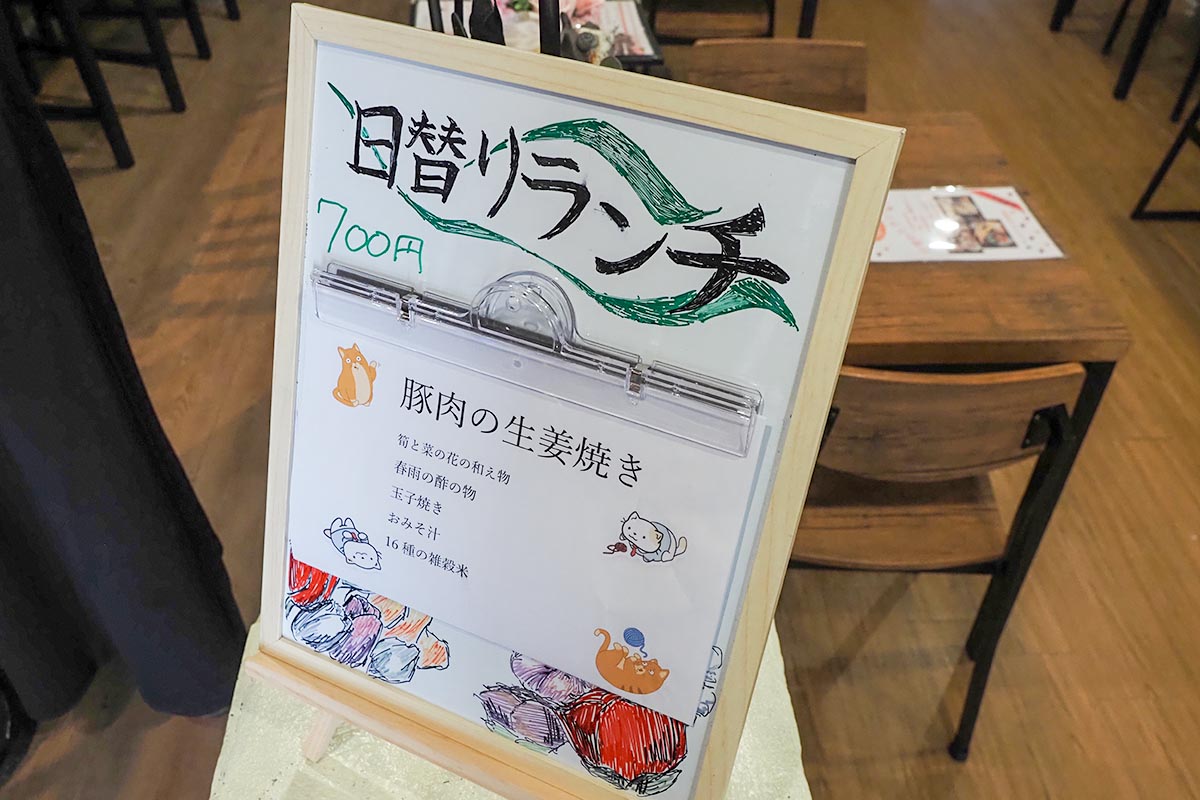 日替りランチ
700円
豚肉の生姜焼き
筍と菜の花の和え物
春雨の酢の物
玉子焼き
おみそ汁
16種の雑穀米